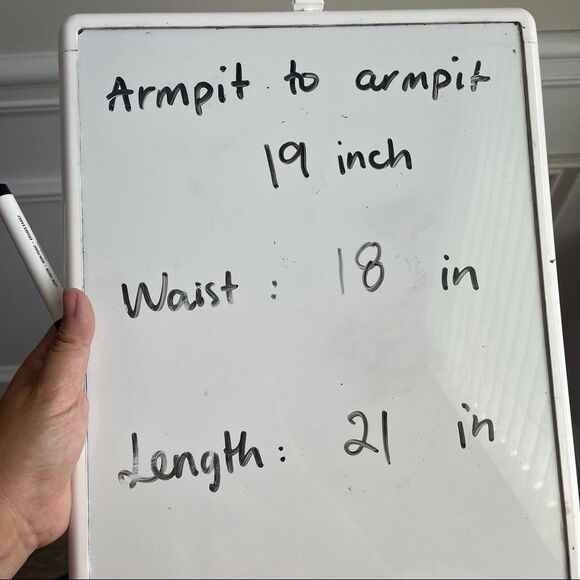 Armpit to armpit
19 inch
Waist : 18 in
Length : 21 in